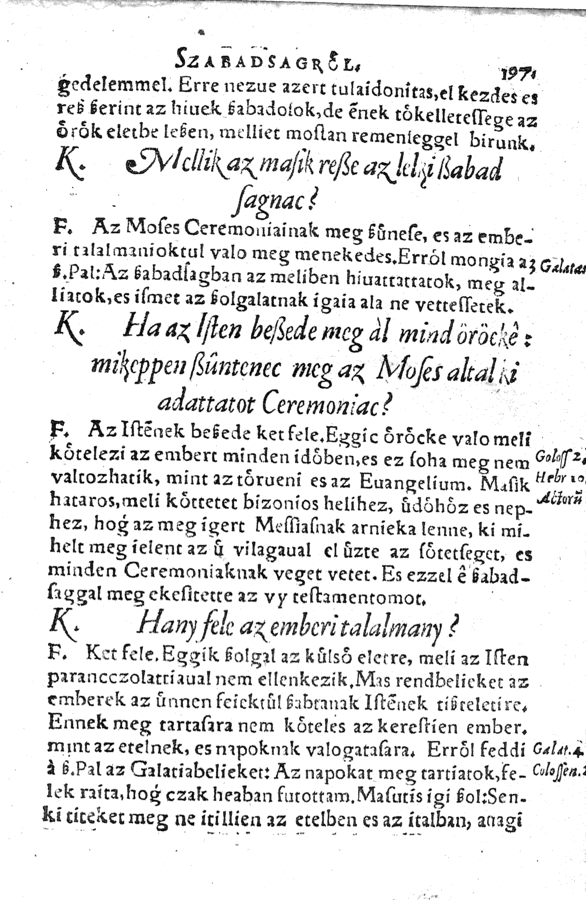 SZABADSAGRÓL.
197.
gedelemmel. Erre nezue azert tulaidonitas, el kezdes es
reß ßerint az hiuek ßabadosok, de ẽnek tókelletessege az
órók eletbe leßen, melliet mostan remenseggel birunk.
K. Mellik az masik reße az lelki ßabad
sagnac?
F. Az Moses Ceremoniainak meg ßûnese, es az embe-
ri talalmanioktul valo meg menekedes. Erról mongia az Galatas
ß. Pal: Az ßabadsagban az meliben hiuattattatok, meg al-
liatok, es ismet az ßolgalatnak igaia ala ne vettessetek.
K. Ha az Isten beßede meg àl mind óróckê:
mikeppen ßûntenec meg az Moses altal ki
adattatot Ceremoniac?
F. Az Istẽnek beßede ket fele. Eggic órócke valo meli
kótelezi az embert minden idóben, es ez soha meg nem Goloss 2.
valtozhatik, mint az tórueni es az Euangelium. Masik Hebr 10.
hataros, meli kóttetet bizonios helihez, ûdóhóz es nep- Actorũ
hez, hog az meg igert Messiasnak arnieka lenne, ki mi-
helt meg ielent az ů vilagaual el ûzte az sótetseget, es
minden Ceremoniaknak veget vetet. Es ezzel ê ßabad-
saggal meg ekesitette az vy testamentomot.
K. Hany fele az emberi talalmany?
F. Ket fele. Eggik ßolgal az kûlsó eletre, meli az Isten
parancczolattiaual nem ellenkezik. Mas rendbelieket az
emberek az ûnnen feiektûl ßabtanak Istẽnek tißteletire.
Ennek meg tartasara nem kóteles az kerestien ember.
mint az etelnek, es napoknak valogatasara. Erról feddi Galat. 4.
à ß. Pal az Galatiabelieket: Az napokat meg tartiatok, fe- Colossen. 2
lek raita, hog czak heaban futottam. Masutis igi ßol: Sen-
ki titeket meg ne itillien az etelben es az italban, auagi